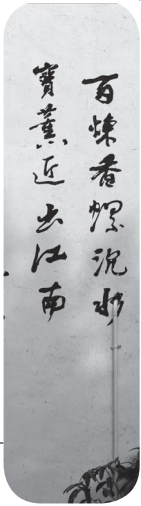 百煉香螺沉水
寳薰近出江南